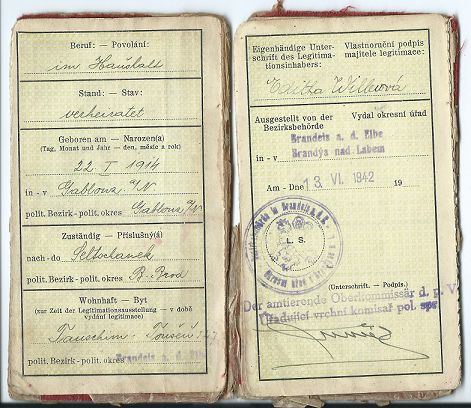 Beruf: — Povolání:
im Haushalt
Stand: — Stav:
verheiratet
Geboren am — Narozen(a)
(Tag, Monat und Jahr — den, měsíc a rok)
22 I 1914
in - v Gablonz a/N
polit. Bezirk - polit. okres Gablonz a/N
Zuständig — Příslušný(á)
nach - do
polit. Bezirk - polit. okres B. Brod
Wohnhaft — Byt
(zur Zeit der Legitimationsausstellung — v době vydání legitimace)
Tauschim - Toušeň
polit. Bezirk - polit. okres Brandeis a. d. Elbe
Eigenhändige Unterschrift des Legitimationsinhabers:
Vlastnoruční podpis majitele legitimace:
Editha
Ausgestellt von der Bezirksbehörde
Vydal okresní úřad
Brandeis a. d. Elbe
in - v Brandýs nad Labem
Am - Dne 13. VI. 1942 19
L. S.
(Unterschrift. - Podpis.)
Der amtierende Oberkommissär d. p. V.
Úřadující vrchní komisař pol. spr.